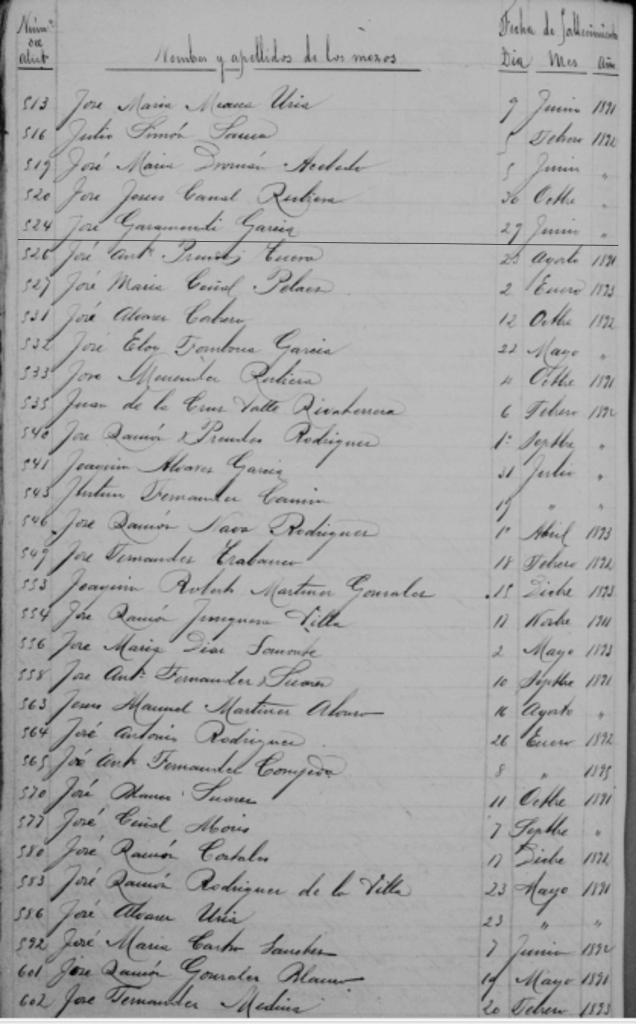 Núm.º de alist. Nombres y apellidos de los mozos Fecha de fallecimiento Día Mes Año
513 José Maria Uria 9 Junio 1891
516 Julio Simón 5 Febrero 1892
519 José Maria Acebedo 5 Junio "
520 José Jesus Canal Rubiera 30 Octbre "
524 José Garamendi Garcia 27 Junio "
526 José Antº Cuervo 23 Agosto 1891
527 José Maria Ceñal Pelaez 2 Enero 1893
531 José Alvarez 12 Octbre 1892
532 José Eloy Garcia 22 Mayo "
533 José Menendez Rubiera 4 Octbre 1891
535 Juan de la Cruz Valle 6 Febrero 1892
540 José Ramón Prendes Rodriguez 1º Septbre "
541 Joaquin Alvarez Garcia 31 Julio "
543 Fernandez 19 " "
546 José Ramón Nava Rodriguez 1º Abril 1893
549 José Fernandez Trabanco 18 Febrero 1892
553 Joaquin Roberto Martinez Gonzalez 15 Dicbre 1893
554 José Ramón Junquera Villa 13 Novbre 1891
556 José Maria Diaz Somonte 2 Mayo 1893
558 José Antº Fernandez Suarez 10 Septbre 1891
563 Jesus Manuel Martinez Alonso 16 Agosto "
564 José Antonio Rodriguez 26 Enero 1892
565 José Antº Fernandez 8 " 1895
570 José Suarez 11 Octbre 1891
577 José Ceñal Moris 7 Septbre "
580 José Ramón Costales 17 Dicbre 1892
583 José Ramón Rodriguez de la Villa 23 Mayo 1891
586 José Alvarez Uria 23 " "
592 José Maria Castro Sanchez 7 Junio 1892
601 José Ramón Gonzalez Blanco 19 Mayo 1891
602 José Fernandez Medina 20 Febrero 1893